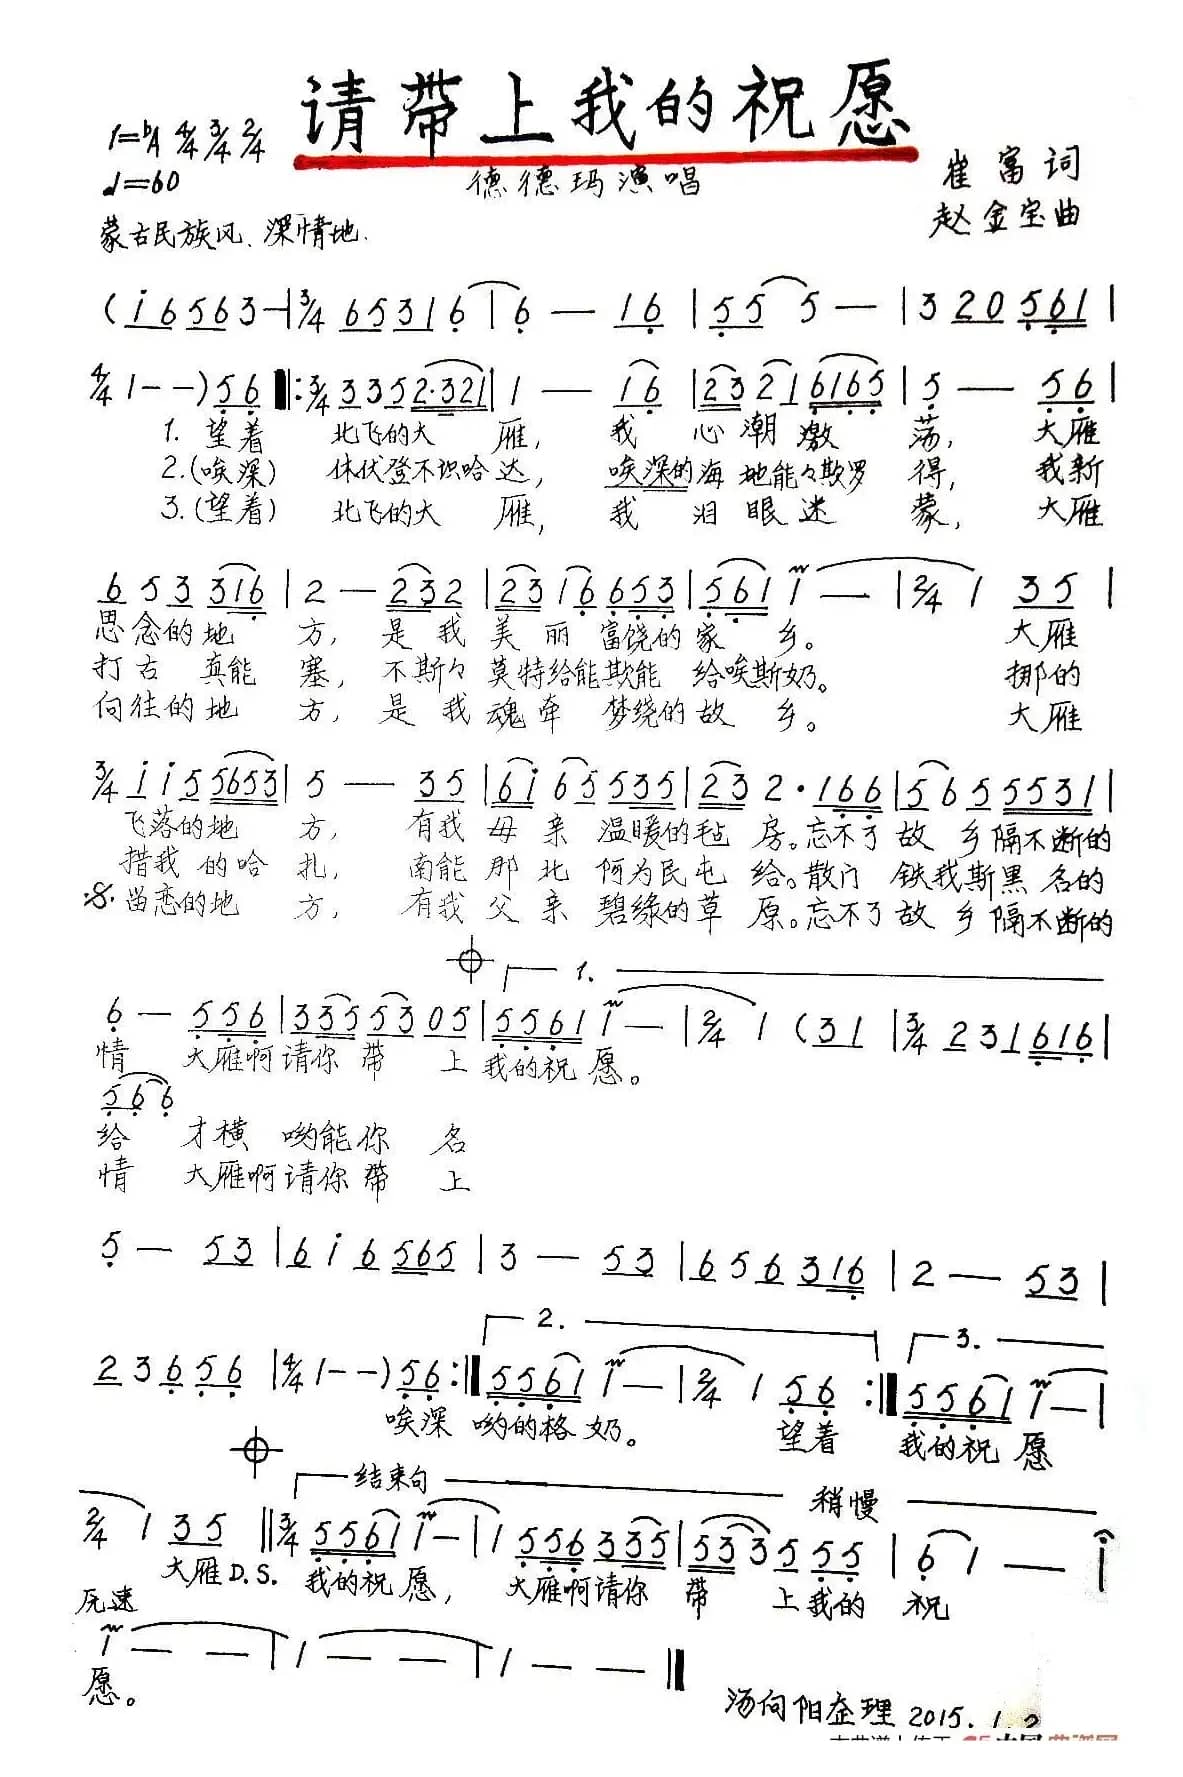 请带上我的祝愿
1=ᵇA 4/4 3/4 2/4
♩=60
德德玛演唱
崔富词
赵金宝曲
蒙古民族风、深情地.
(i 6 5 6 3 — | 3/4 6 5 3 1 6 | 6 — 1 6 | 5 5 5 — | 3 2 0 5 6 1 |
4/4 1 - - ) 5 6 ‖: 3/4 3 3 5 2·3 2 1 | 1 — 1 6 | 2 3 2 1 6 1 6 5 | 5 — 5 6 |
1. 望着 北飞的大 雁, 我 心潮激 荡, 大雁
2.(唉深) 休伏登不识哈达, 唉深的海 地能々欺罗 得, 我新
3.(望着) 北飞的大 雁, 我 泪眼迷 蒙, 大雁
6 5 3 3 1 6 | 2 — 2 3 2 | 2 3 1 6 6 5 3 | 5 6 1 1 — | 2/4 1 3 5 |
思念的地 方, 是我美丽富饶的家 乡。 大雁
打古真能 塞, 不斯々莫特给能欺能 给唉斯奶。 挪的
向往的地 方, 是我魂牵 梦绕的故 乡。 大雁
3/4 i i 5 5 6 5 3 | 5 — 3 5 | 6 i 6 5 5 3 5 | 2 3 2 · 1 6 6 | 5 6 5 5 5 3 1 |
飞落的地 方, 有我母亲 温暖的毡 房。忘不了故 乡隔不断的
措我的哈 扎, 南能那北 阿为民屯 给。散门 铁我斯黑名的
留恋的地 方, 有我父亲 碧绿的草 原。忘不了故 乡隔不断的
1.
6 — 5 5 6 | 3 3 5 5 3 0 5 | 5 5 6 1 1 — | 2/4 1 (3 1 | 3/4 2 3 1 6 1 6 |
情 大雁啊请你带 上我的祝愿。
5 6 6
给 才横 哟能你 名
情 大雁啊请你带 上
5 — 5 3 | 6 i 6 5 6 5 | 3 — 5 3 | 6 5 6 3 1 6 | 2 — 5 3 |
2. 3.
2 3 6 5 6 | 4/4 1 - - ) 5 6 :‖ 5 5 6 1 1 — | 2/4 1 5 6 :‖ 5 5 6 1 1 — |
唉深 哟的格奶。 望着 我的祝愿
结束句 稍慢
2/4 1 3 5 ‖ 3/4 5 5 6 1 1 — | 1 5 5 6 3 3 5 | 5 3 3 5 5 5 | 6 1 — i |
大雁D.S. 我的祝愿, 大雁啊请你 带 上我的 祝
1 — — | 1 — — | 1 — ‖
愿。
汤向阳 整理 2015.1.2